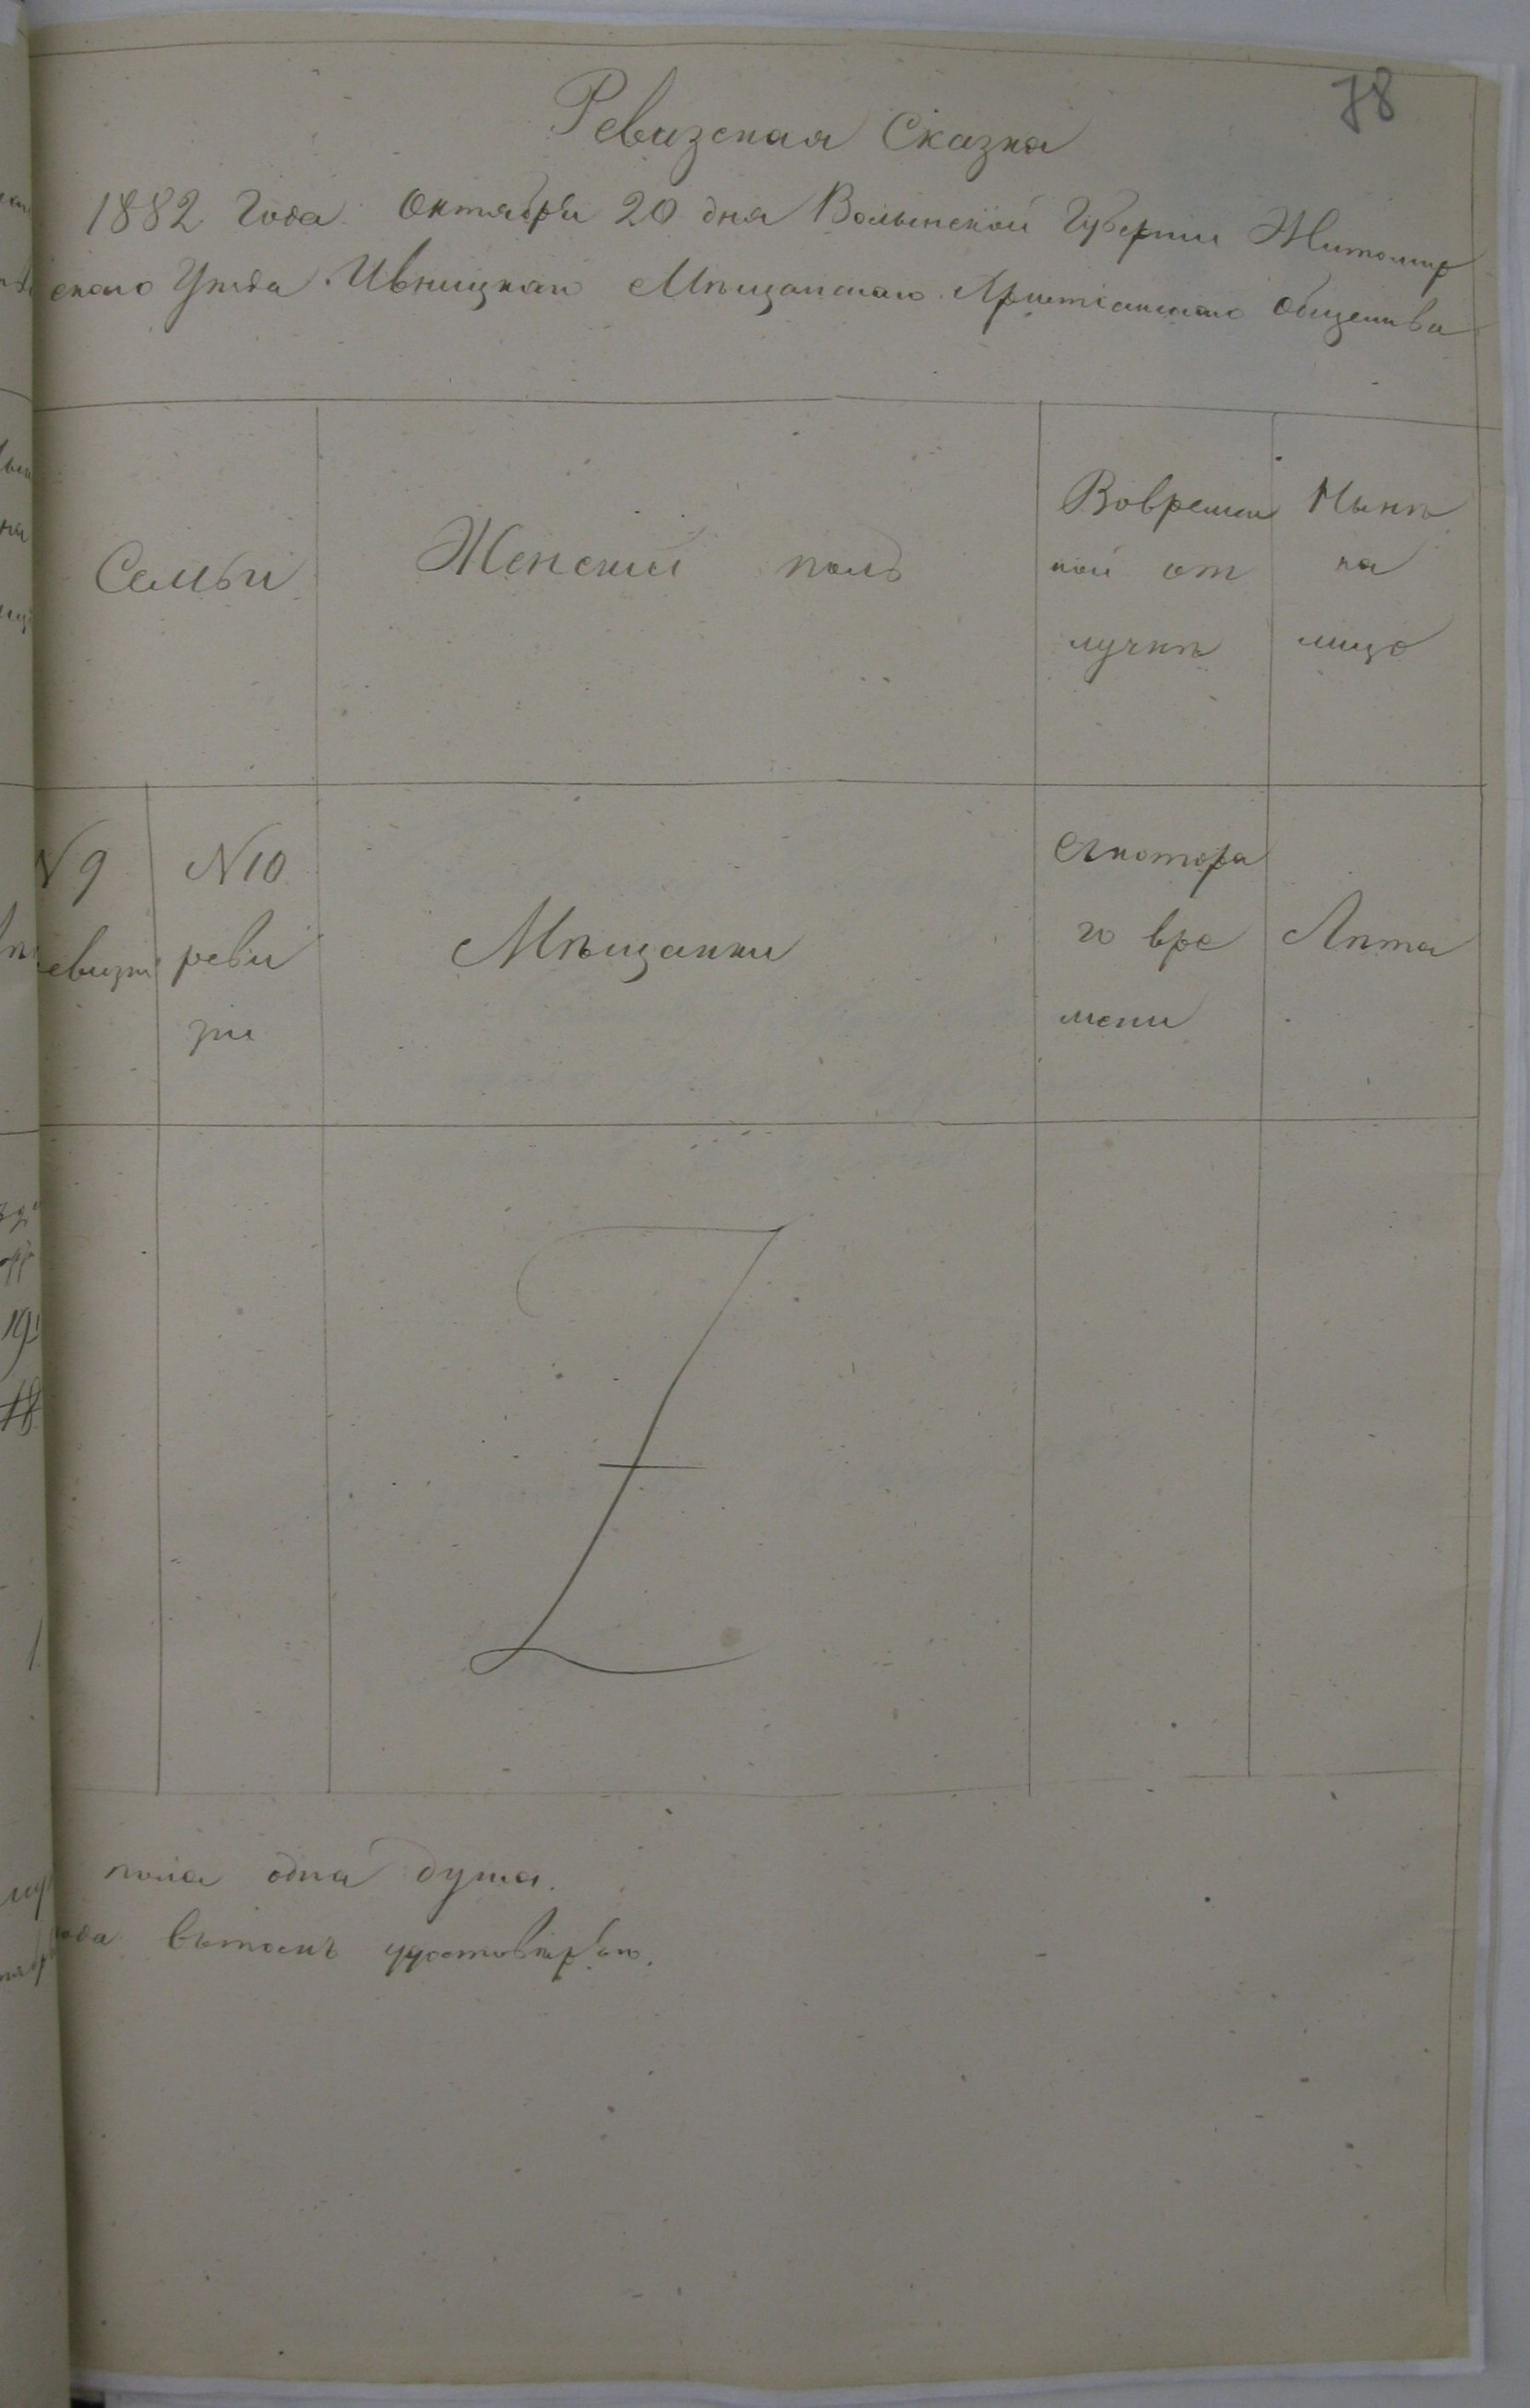 78
Ревизская Сказка
1882 Года Октября 20 дня Волынской Губернiи Житомир
скаго Уѣзда Ивницкаго Мѣщанскаго Христiанскаго общества
Семьи
Женский полъ
Вовремен
ной от
лучкѣ
Нынѣ
на
лицо
N 9
ревизiи
N 10
реви
зiи
Мѣщанки
Скотора
го вре
мени
Лѣта
пола одна душа.
года вътомъ удостовѣряю.